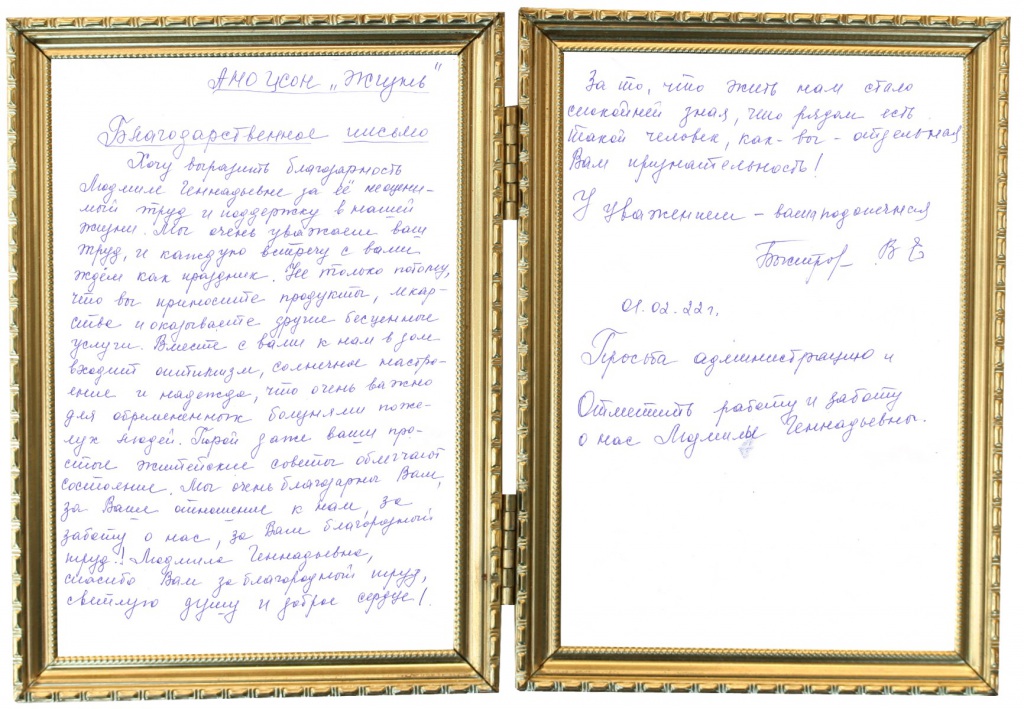 АНО ЦСОН „Жизнь"
Благодарственное письмо
Хочу выразить благодарность
Людмиле Геннадьевне за её неоцени-
мый труд и поддержку в нашей
жизни. Мы очень уважаем ваш
труд, и каждую встречу с вами
ждём как праздник. Не только потому,
что вы приносите продукты, лекар-
ства и оказываете другие бесценные
услуги. Вместе с вами к нам в дом
входит оптимизм, солнечное настро-
ение и надежда, что очень важно
для обремененных болезнями пожи-
лых людей. Порой даже ваши про-
стые житейские советы облегчают
состояние. Мы очень благодарны Вам,
за Ваше отношение к нам, за
заботу о нас, за Вам благородный
труд!! Людмила Геннадьевна,
спасибо Вам за благородный труд,
светлую душу и доброе сердце!
За то, что жить нам стало
спокойней зная, что рядом есть
такой человек, как - вы - отдельная
Вам признательность!
С уважением - ваша подопечная
В Е
01.02.22г.
Просьба администрацию и
Отметить работу и заботу
о нас Людмилы Геннадьевны.